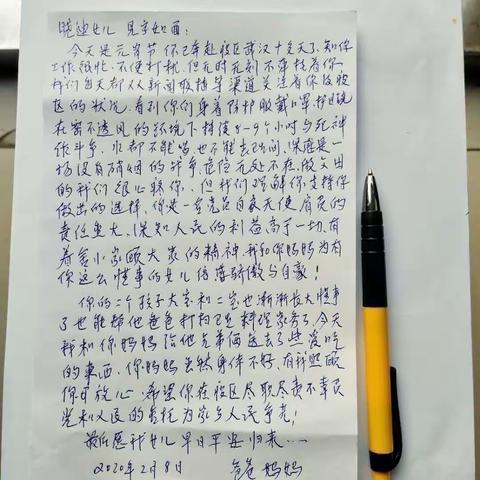 晓迪女儿 见字如面:
今天是元宵节 你已奔赴疫区武汉十多天了,知你
工作繁忙,不便打扰,但无时无刻不牵挂着你。
我们每天都从新闻报播等渠道关注着你及疫
区的状况,看到你们身着防护服戴口罩护目镜
在密不透风的环境下持续8-9个小时与死神
作斗争,水都不能喝也不能去卫间,深感这是一
场没有硝烟的斗争,危险无处不在,做父母
的我们很心疼你,但我们理解你支持你
做出的选择,你是一名党员白衣天使肩负的
责任重大,深知人民的利益高于一切,有
着舍小家顾大家的精神,我和你妈妈为有
你这么懂事的女儿倍感骄傲与自豪!
你的二个孩子大宝和二宝也渐渐长大懂事
了也能帮他爸爸打扫卫生料理家务了,今天
我和你妈妈给他兄弟俩送去了些爱吃
的东西,你妈妈虽然身体不好,有我照顾
你可放心,希望你在疫区尽职尽责不辜负
党和人民的重托为家乡人民争光!
最后愿我女儿早日平安归来……
2020年2月8日 爸爸妈妈